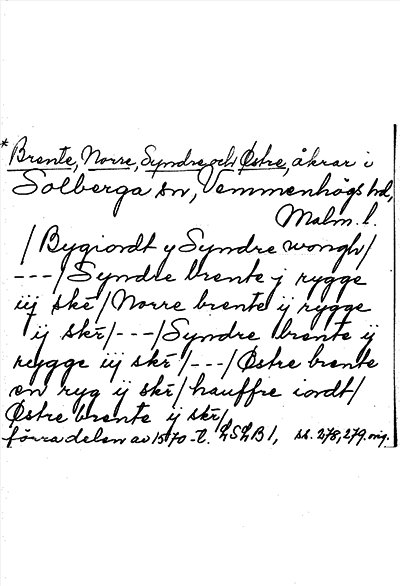 * Brente, Norre, Syndre och Østre, åkrar i
Solberga sn, Vemmenhögs hd,
Malm. l.
/ Bygiordt y Syndre wongh /
--- / Syndre brente y rygge
iij skē / Norre brente ij rygge
ij skē / --- / Syndre brente ij
rygge iij skē / --- / Østre brente
en ryg ij skē / hauffre iordt /
Østre brente ij skē /
förra delen av 1570-t. LSLB 1, ss. 278, 279. orig.